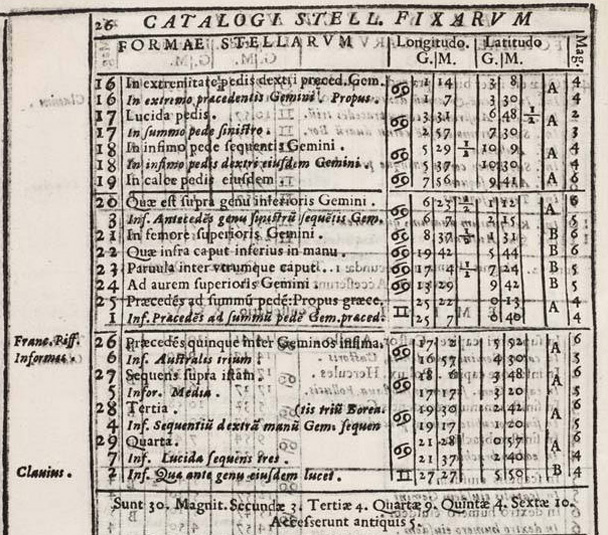 26 CATALOGI STELL. FIXARVM
FORMAE STELLARVM Longitudo. Latitudo Mag.
G. M. G. M.
16 In extremitate pedis dextri præced. Gem. ♋ 1 14 3 8 A 4
16 In extremo præcedentis Gemini. Propus. 1 7 3 30 4
17 Lucida pedis. ♋ 3 31 6 48 1/2 A 2
17 In summo pede sinistro. 2 57 7 30 3
18 In infimo pede sequentis Gemini. ♋ 5 29 1/2 10 9 A 4
18 In infimo pedis dextri eiusdem Gemini. 5 37 10 30 4
19 In calce pedis eiusdem ♋ 7 56 9 41 A 6
20 Quæ est supra genu inferioris Gemini. ♋ 6 1/2 1 12 A 6
3 Inf. Antecedēs genu sinistrū sequētis Gem. 6 7 2 15 5
21 In femore superioris Gemini. ♋ 8 37 1 31 B 6
22 Quæ infra caput inferius in manu. ♋ 19 42 5 44 B 6
23 Paruula inter vtrumque caput. ♋ 17 4 1/2 7 24 B 5
24 Ad aurem superioris Gemini ♋ 13 29 9 42 B 5
25 Præcedēs ad summū pedē: Propus græce. ♊ 25 22 0 13 A 4
1 Inf. Præcedēs ad summū pedē Gem. præced. 25 7 0 40 4
Franc. Piff. 26 Præcedēs quinque inter Geminos infima. ♋ 17 2 5 92 A 6
Informes. 6 Inf. Australis trium. 16 57 4 30 5
27 Sequens supra istam. ♋ 18 3 48 A 6
5 Infor. Media. 17 17 3 20 5
28 Tertia. (tis triū Borea. ♋ 19 30 2 41 A 6
4 Inf. Sequentiū dextrā manū Gem. sequen 19 17 1 20 5
29 Quarta. ♋ 21 28 0 57 A 6
7 Inf. Lucida sequens tres. 21 37 2 40 4
Clauius. 2 Inf. Quæ ante genu eiusdem lucet. ♊ 27 27 5 50 B 4
Sunt 30. Magnit. Secundæ 3. Tertiæ 4. Quartæ 9. Quintæ 4. Sextæ 10.
Accesserunt antiquis 5.